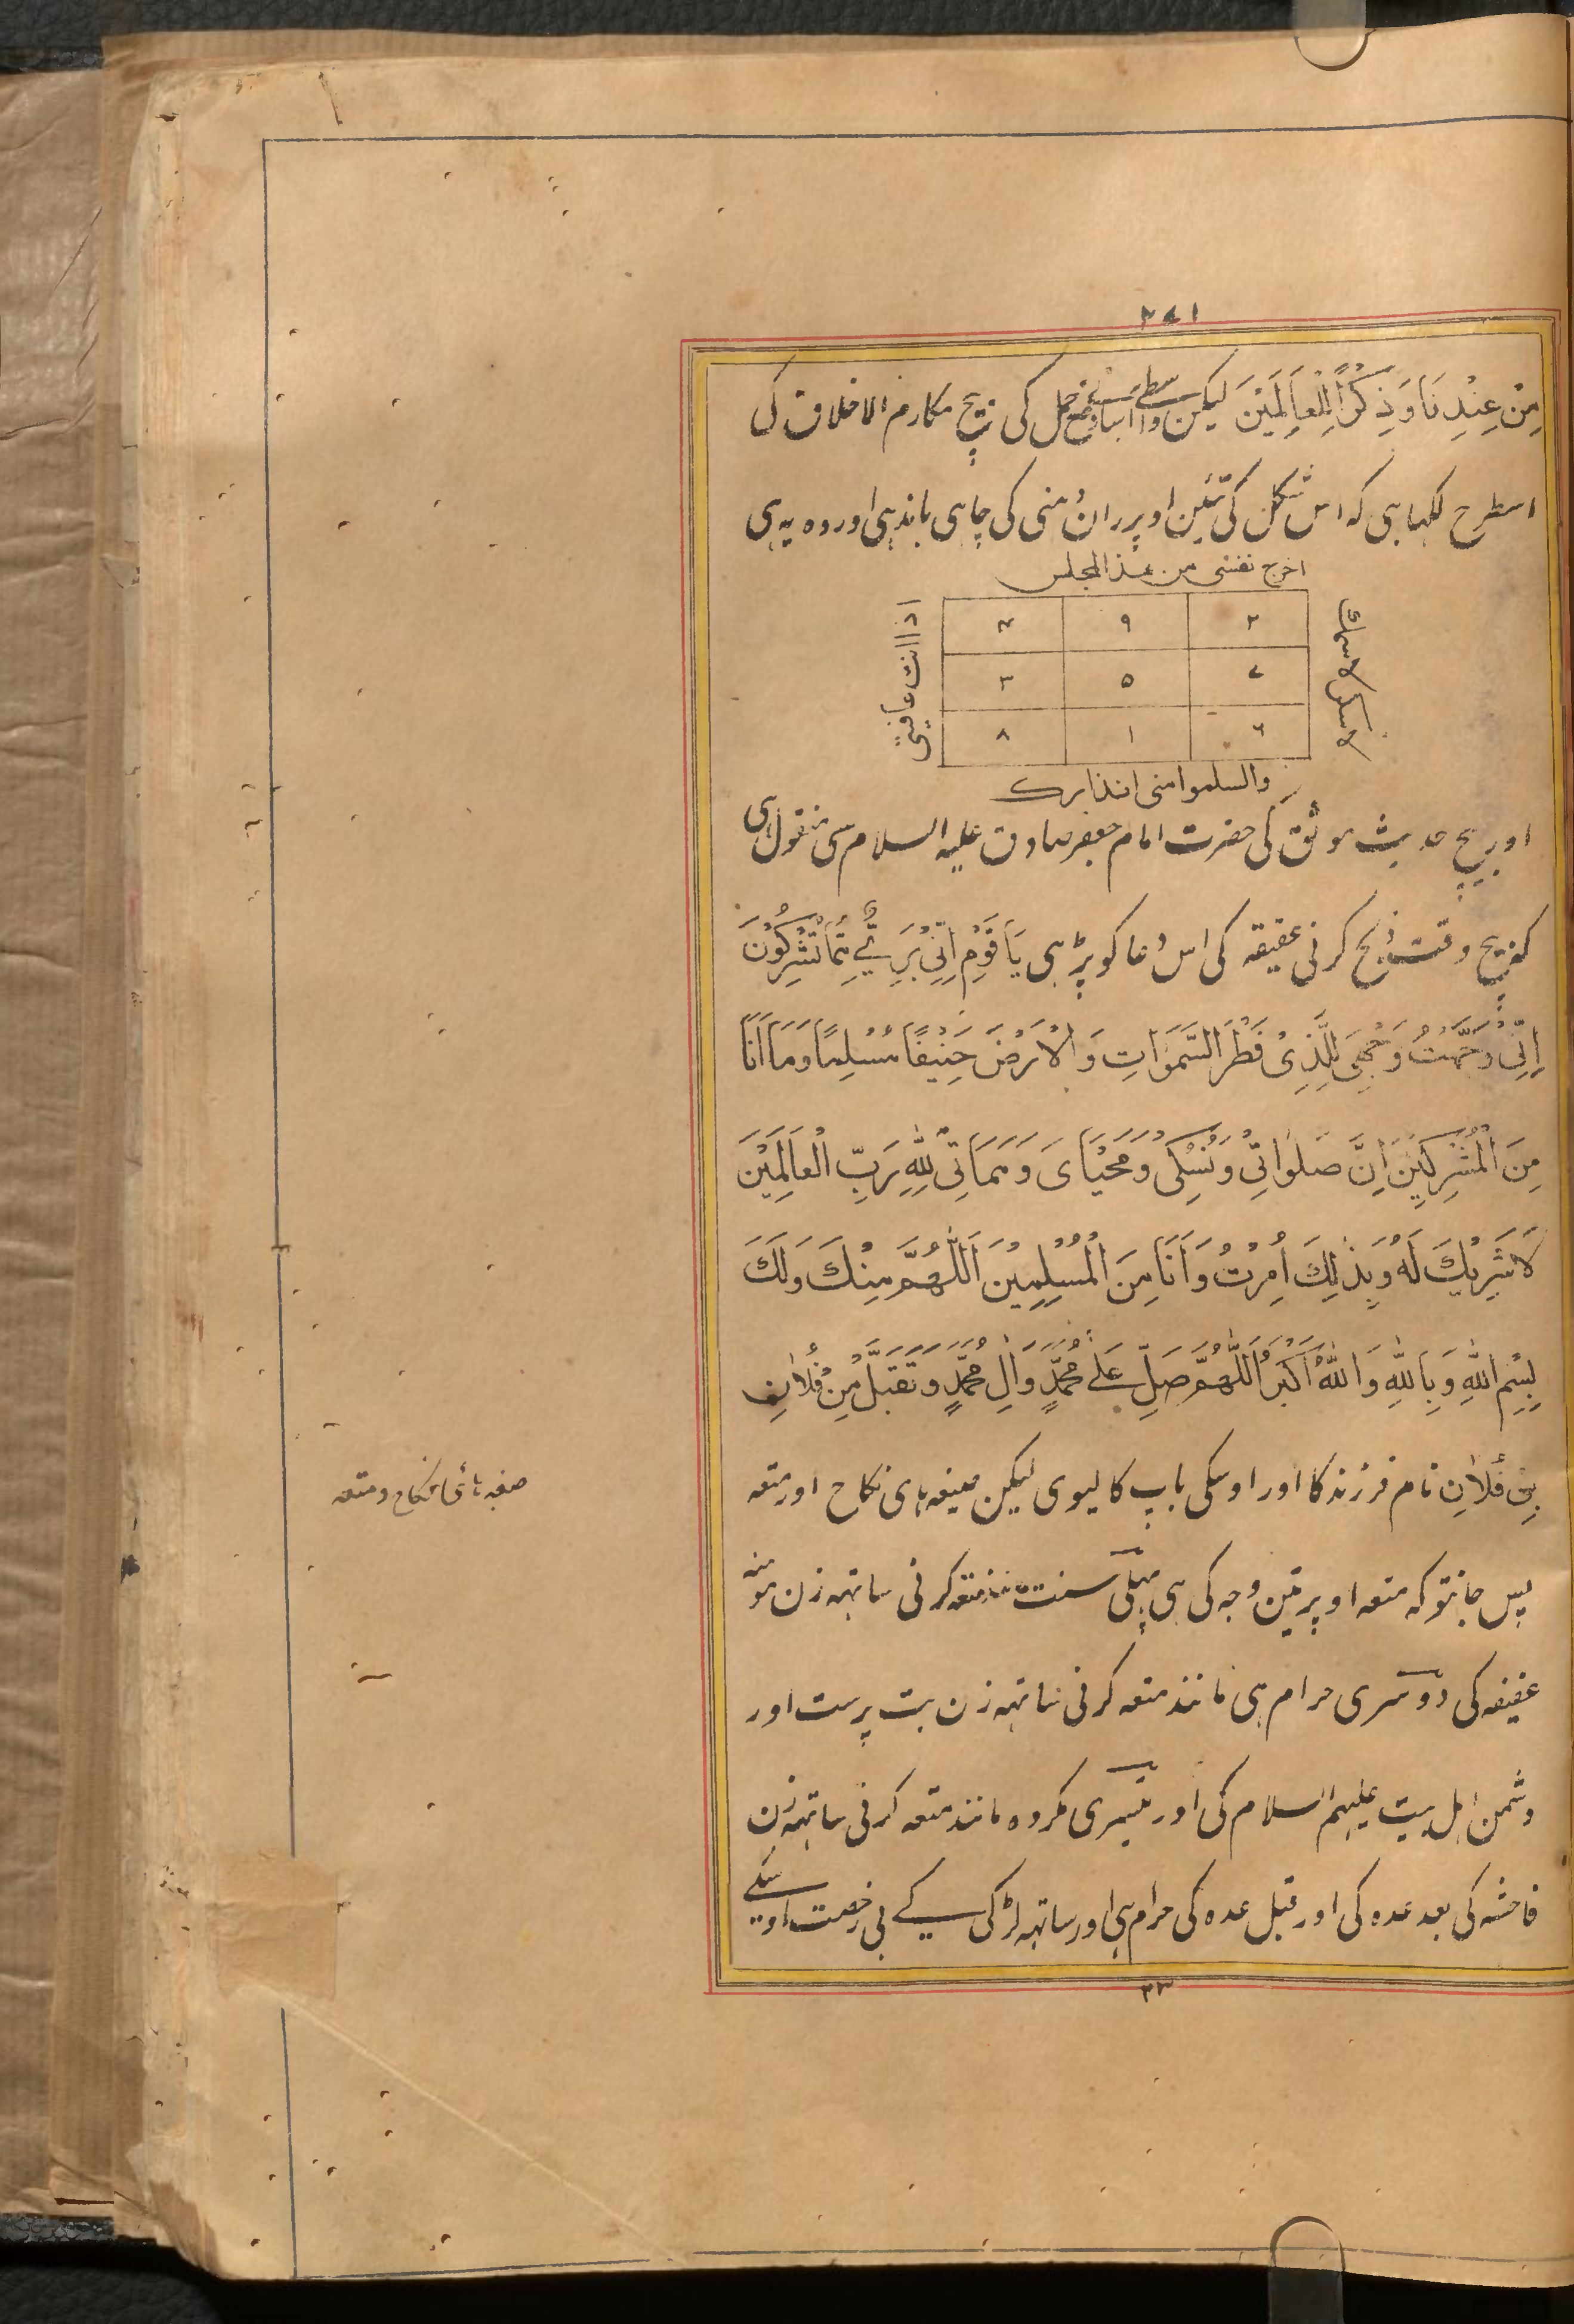 ۲۷۱
مِنْ عِنْدِنَا وَذِكْرًا لِلْعَالَمِيْنَ لیکن واسطے وضع حمل کی بیچ مکارم الاخلاق کی
اسطرح لکہا ہی کہ اس شکل کی تئین اوپر ران منی کی چاہی باندہی اور وہ یہ ہی
اخرج نفسی من هذا المجلس
۴ ۹ ۲
۳ ۵ ۷
۸ ۱ ۶
اور بیچ حدیث موثق کی حضرت امام جعفر صادق علیہ السلام سی منقول ہی
کہ بیچ وقت ذبح کرنی عقیقہ کی اس دعا کو پڑہی يَا قَوْمِ اِنِّيْ بَرِيْءٌ مِمَّا تُشْرِكُوْنَ
اِنِّيْ وَجَّهْتُ وَجْهِيَ لِلَّذِيْ فَطَرَ السَّمٰوَاتِ وَالْاَرْضَ حَنِيْفًا مُسْلِمًا وَمَا اَنَا
مِنَ الْمُشْرِكِيْنَ اِنَّ صَلٰوتِيْ وَنُسُكِيْ وَمَحْيَايَ وَمَمَاتِيْ لِلّٰهِ رَبِّ الْعَالَمِيْنَ
لَا شَرِيْكَ لَهُ وَبِذٰلِكَ اُمِرْتُ وَاَنَا مِنَ الْمُسْلِمِيْنَ اَللّٰهُمَّ مِنْكَ وَلَكَ
بِسْمِ اللّٰهِ وَبِاللّٰهِ وَاللّٰهُ اَكْبَرُ اَللّٰهُمَّ صَلِّ عَلٰى مُحَمَّدٍ وَاٰلِ مُحَمَّدٍ وَتَقَبَّلْ مِنْ فُلَانِ
بْنِ فُلَانِ نام فرزند کا اور اوسکی باپ کا لیوی لیکن صیغہ ہای نکاح اور متعہ
صیغہ ہائی نکاح و متعہ
پس جانتو کہ متعہ اوپر تین وجہ کی ہی پہلی سنت مانند متعہ کرنی ساتہہ زن مومنہ
عفیفہ کی دوسری حرام ہی مانند متعہ کرنی ساتہہ زن بت پرست اور
دشمن اہل بیت علیہم السلام کی اور تیسری مکروہ مانند متعہ کرنی ساتہہ زن
فاحشہ کی بعد عدہ کی اور قبل عدہ کی حرام ہی اور ساتہہ لڑکی کے بی رخصت اوسکے